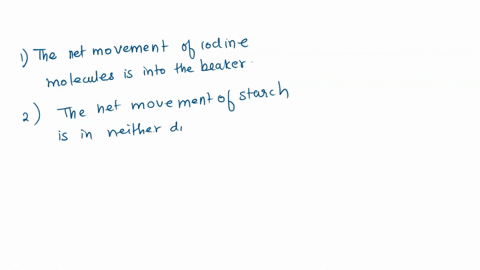 1) The net movement of iodine
molecules is into the beaker.
2) The net movement of starch
is in neither di